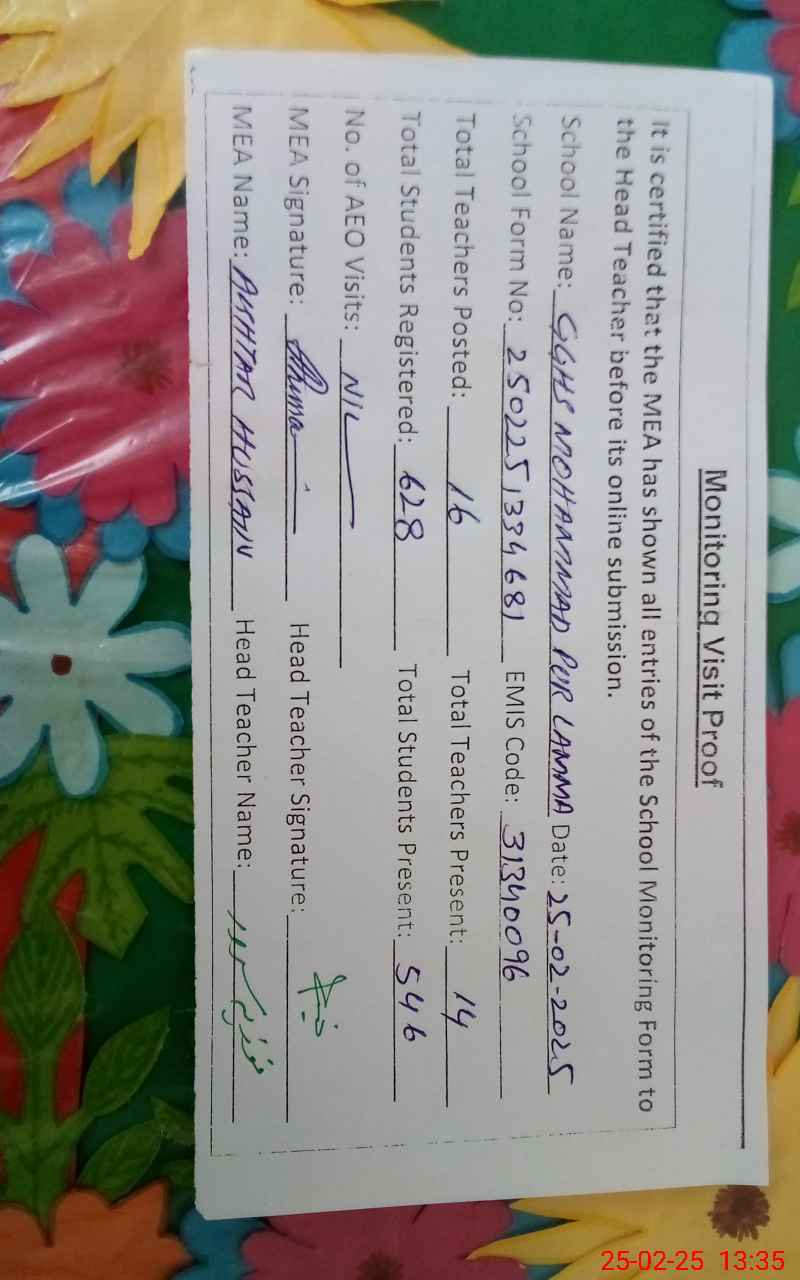 Monitoring Visit Proof
It is certified that the MEA has shown all entries of the School Monitoring Form to
the Head Teacher before its online submission.
School Name: GGHS MOHAMMAD PUR LAMMA Date: 25-02-2025
School Form No: 2502251334681 EMIS Code: 31340096
Total Teachers Posted: 16 Total Teachers Present: 14
Total Students Registered: 628 Total Students Present: 546
No. of AEO Visits: NIL
MEA Signature: Head Teacher Signature:
MEA Name: AKHTAR HUSSAIN Head Teacher Name:
25-02-25 13:35